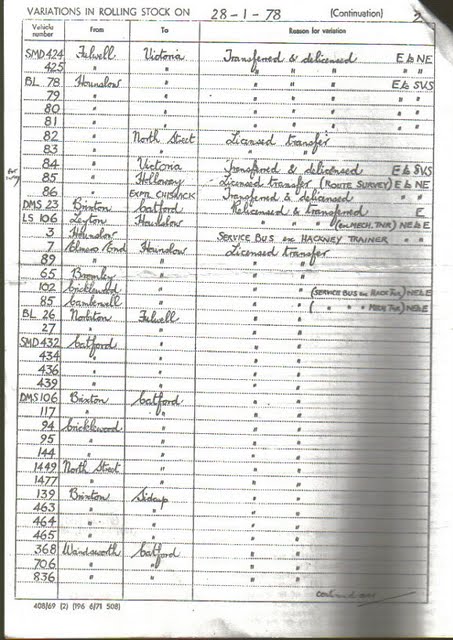 VARIATIONS IN ROLLING STOCK ON 28-1-78 (Continuation) 2
Vehicle number From To Reason for variation
SMD 424 Fulwell Victoria Transferred & delicensed E to NE
425 " " " " " " "
BL 78 Hounslow " " " " E to SVS
79 " " " " " " "
80 " " " " " " "
81 " " " " " " "
82 " North Street Licensed transfer
83 " " " "
84 " Victoria Transferred & delicensed E to SVS
85 " Holloway Licensed transfer (ROUTE SURVEY) E to NE
86 " EXPTL CHISWICK Transferred & delicensed "
DMS 23 Brixton Catford Relicensed & transferred E
LS 106 Leyton Hounslow " " (ex MECH. TNR) NE to E
3 Hounslow SERVICE BUS ex HACKNEY TRAINER " "
7 Elmers End Hounslow Licensed transfer
89 " " " "
65 Bromley " " "
102 Cricklewood " " " (SERVICE BUS ex HACK TNR) NE to E
85 Camberwell " " " ( " " " MECH TNR) NE to E
BL 26 Norbiton Fulwell " "
27 " " " "
SMD 432 Catford " " "
434 " " " "
436 " " " "
439 " " " "
DMS 106 Brixton Catford " "
117 " " " "
94 Cricklewood " " "
95 " " " "
144 " " " "
1449 North Street " " "
1477 " " " "
139 Brixton Sidcup " "
463 " " " "
464 " " " "
465 " " " "
368 Wandsworth Catford " "
706 " " " "
836 " " " "
408/69 (2) (196 6/71 508)